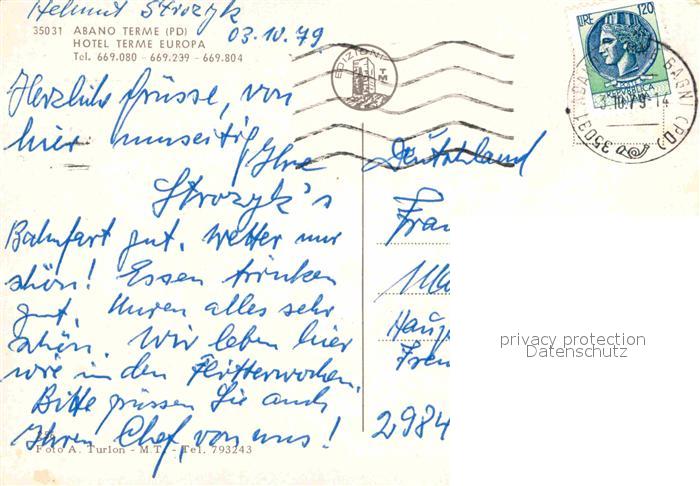 Helmut Strozyk
03.10.79
35031 ABANO TERME (PD)
HOTEL TERME EUROPA
Tel. 669.080 - 669.239 - 669.804
Herzliche Grüsse, von
hier umseitig Ihre
Strozyk's
Bahnfart gut. Wetter nur
schön! Essen trinken
gut. Huren alles sehr
schön. Wir leben hier
wie in den Flitterwochen.
Bitte grüssen Sie auch
Ihren Chef, von uns!
Foto A. Turlon - M.T. - Tel. 793243
EDIZIONI
T M
LIRE 120
REPUBBLICA
35031 ABANO BAGNI (PD)
3.10.79-14
Deutschland
Frau
Haup
Fren
2984
privacy protection
Datenschutz